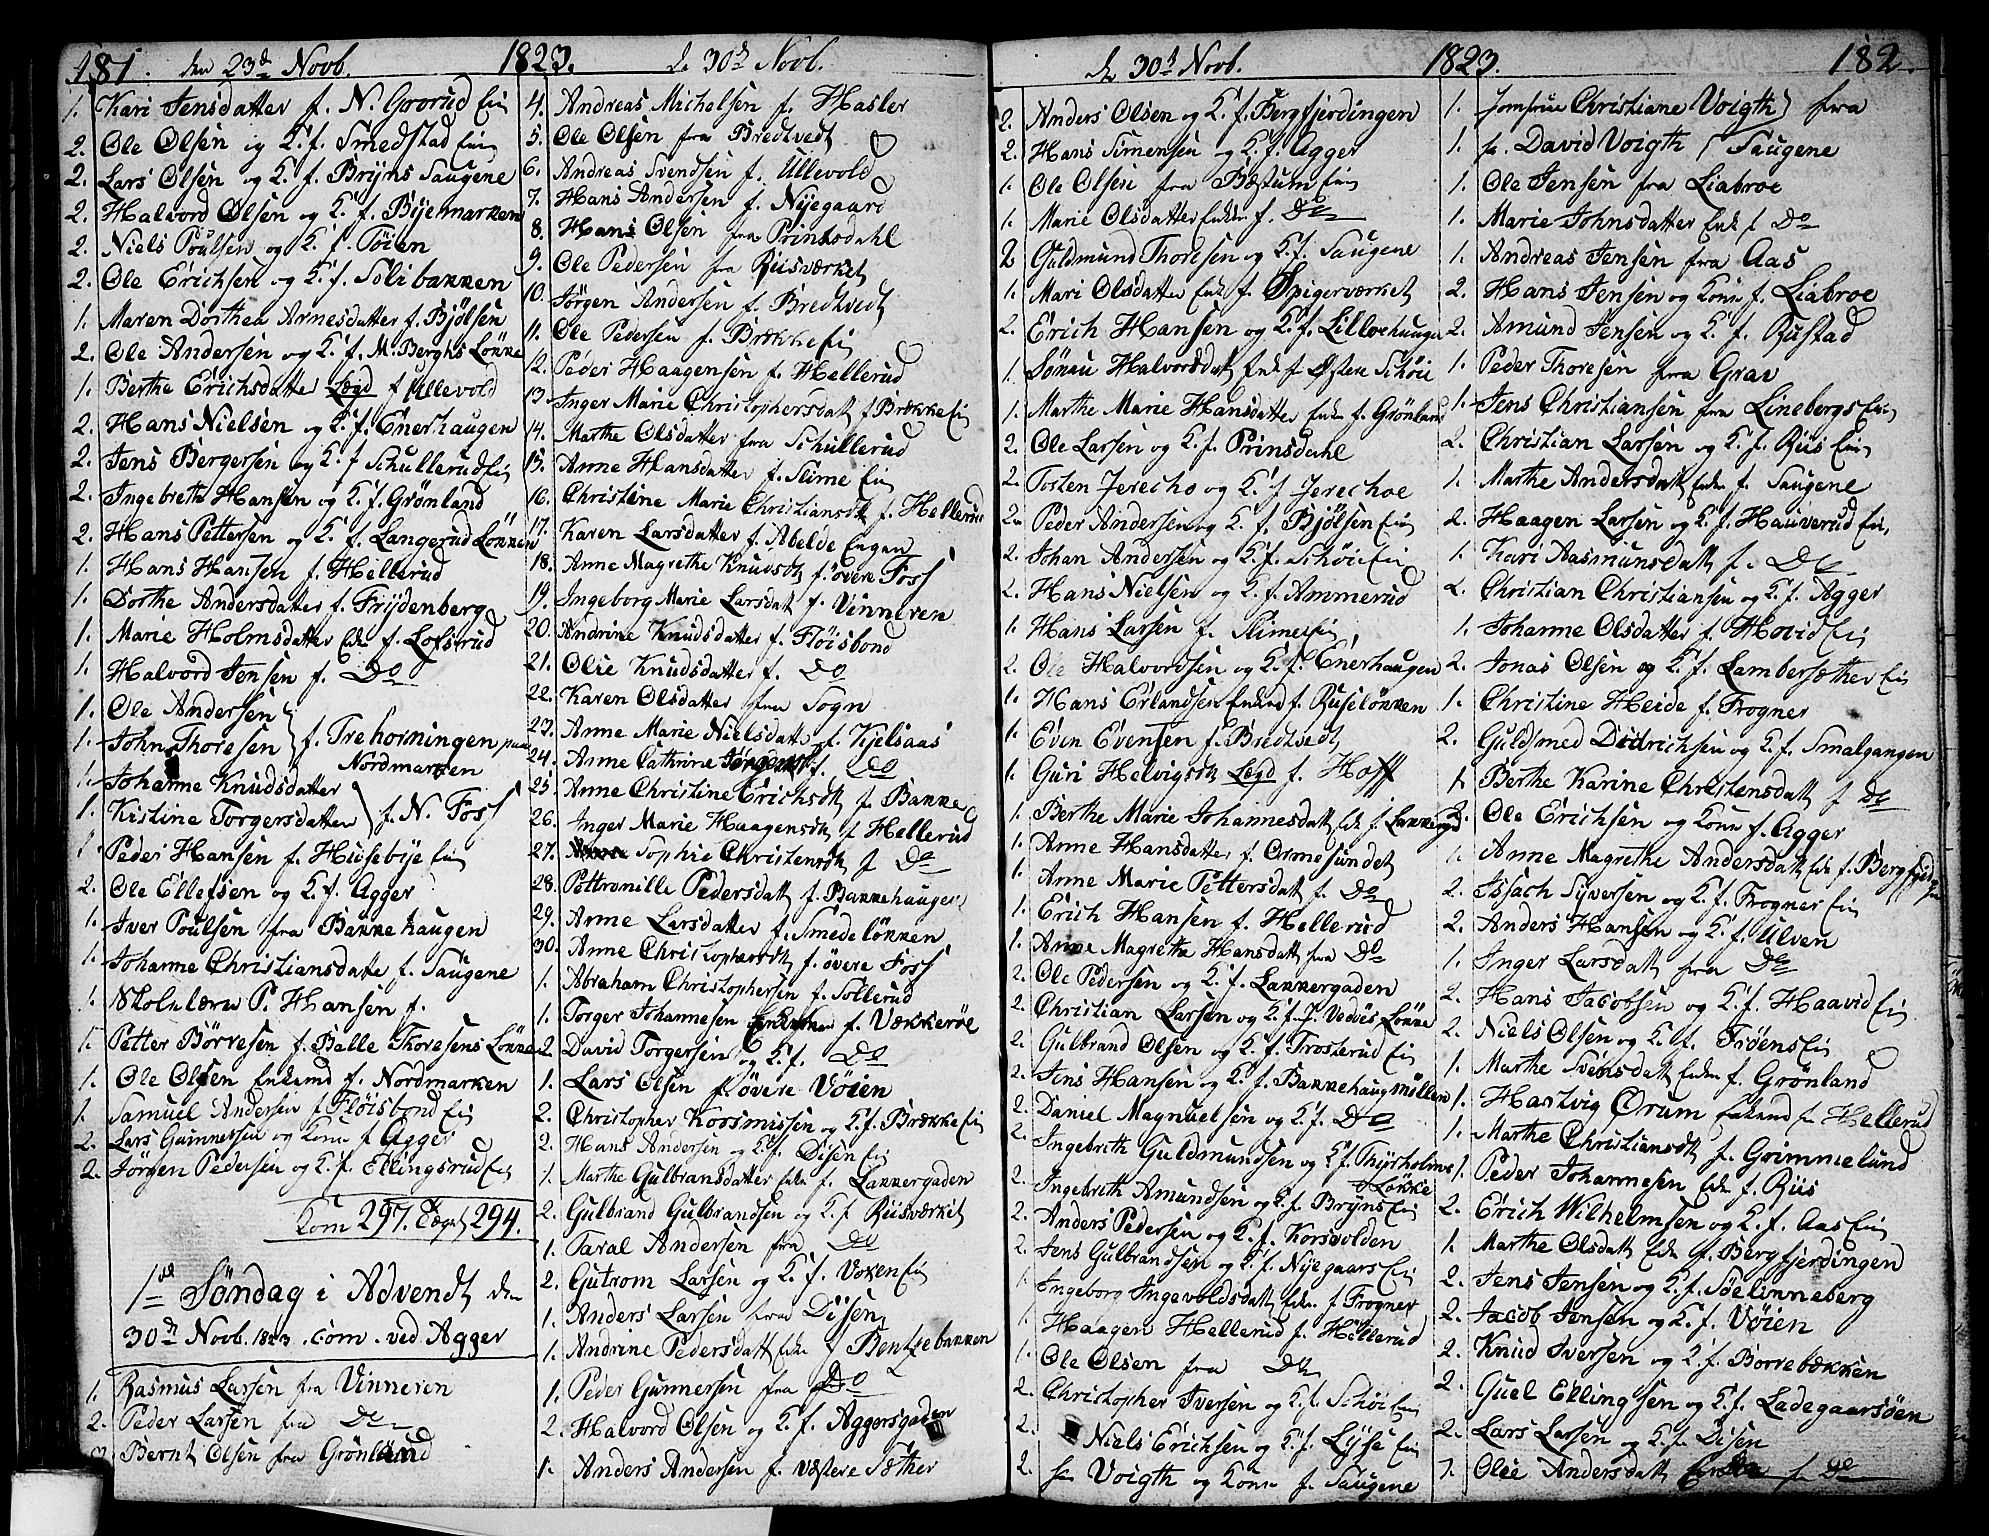 181. den 23de Novb. 1823. d. 30te Novb.
1. Kari Jensdatter f. N. Goorud Eie
2. Ole Olsen og K. f. Smedstad Eie
2. Lars Olsen og K. f. Bryns Saugene
2. Halvord Olsen og K. f. Byemarken
2. Niels Poulsen og K. f. Töien
2. Ole Erichsen og K. f. Solibakken
1. Maren Dorthea Arnesdatter f. Bjølsen
2. Ole Andersen og K. f. M. Berghs Løkke
1. Berthe Erichsdatter Lægd f Ullevold
2. Hans Nielsen og K. f. Enerhaugen
2. Jens Bergersen og K. f Schullerud Eie
2. Ingebreth Hansen og K. f. Grönland
2. Hans Pettersen og K. f. Langerud Løkken
1. Hans Hansen f. Hellerud
1. Dorthe Andersdatter f. Frydenberg
1. Marie Holmsdatter Enke f. Lofsrud
1. Halvord Jensen f. Do
1. Ole Andersen
1. John Thoresen f. Trehorningen paa
Nordmarken
1. Johanne Knudsdatter
1. Kistine Torgersdatter f. N. Foss
1. Peder Hansen f. Husebye Eie
2. Ole Ellefsen og K. f. Agger
1. Iver Poulsen fra Bakkehaugen
1. Johanne Christiansdatte f. Saugene
1. Skolelærer P. Hansen f.
1. Petter Börresen f. Balle Thoresens Løkke
1. Ole Olsen Enkemd f. Nordmarken
1. Samuel Andersen f Fløisbond Eie
2. Lars Gunnersen og Kone f Agger
2. Jörgen Pedersen og K. f. Ellingsrud Eie
Kom 297. 294.
1ste Söndag i Advendt den
30te Novb. 1823. Com. ved Agger
1. Rasmus Larsen fra Vinneren
2. Peder Larsen fra Do
3. Bernt Olsen fra Grönland
4. Andreas Michelsen f. Hasler
5. Ole Olsen fra Bredtvedt
6. Andreas Svendsen f. Ullevold
7. Hans Andersen f. Nyegaard
8. Hans Olsen fra Prinsdahl
9. Ole Pedersen fra Riisværket
10. Jörgen Andersen f. Bredtvedt
11. Ole Pedersen f. Brøkke Eie
12. Peder Haagensen f. Hellerud
13. Inger Marie Christophersdatt f Brøkke Eie
14. Marthe Olsdatter fra Schullerud
15. Anne Hansdatter f. Slime Eie
16. Christine Marie Christiansdt f. Hellerud
17. Karen Larsdatter f. Abelde Engen
18. Anne Magrethe Knudsdt f. övere Foss
19. Ingeborg Marie Larsdatt f. Vinneren
20. Andrine Knudsdatter f. Fløisbond
21. Olie Knudsdatter f. Do
22. Karen Olsdatter fra Sogn
23. Anne Marie Nielsdatter f. Kjelsaas
24. Anne Cathrine f. Do
25. Anne Christine Erichsdt f. Bakke
26. Inger Marie Haagensdt f Hellerud
27. Sophie Christensdt f Do
28. Pettronille Pedersdatt f. Bakkehaugen
29. Anne Larsdatter f. Smedeløkken
30. Anne Christophersdt f. övere Foss
1. Abraham Christophersen f. Sollerud
1. Torger Johannesen f. Vækkerøe
2. David Torgersen og K. f. Do
1. Lars Olsen f. övere Vöien
2. Christopher Koosmissen og K. f. Brøkke Eie
2. Hans Andersen og K. f. Disen Eie
1. Marthe Gulbransdatter Enke f. Lakkergaden
2. Gulbrand Gulbrandsen og K. f Riisværket
1. Taral Andersen fra Do
2. Gutrom Larsen og K. f. Voxen Eie
1. Anders Larsen fra Disen
1. Andrine Pedersdatt Enke f Bentsebakken
1. Peder Gunnersen fra Do
2. Halvord Olsen og K. f. Aggersgaden
1. Anders Andersen f. Væstere Sæther
d. 30te Novb. 1823. 182.
2. Anders Olsen og K. f. Bergfjerdingen
2. Hans Simensen og K. f. Agger
1. Ole Olsen fra Bæstum Eie
1. Marie Olsdatter Enke f. Do
2 Guldmund Thoresen og K. f. Saugene
1. Mari Olsdatter Enke f. Spigerværket
2. Erich Hansen og K. f. Lilloehaugen
1. Halvorsdatt Enke f Østere Schöie
1. Marthe Marie Hansdatter Enke f. Grönland
2. Ole Larsen og K. f. Prinsdahl
2. Tosten Jerecho og K. f Jerechoe
2. Peder Andersen og K. f. Bjölsen Eie
2. Johan Andersen og K. f. Schöie Eie
2. Hans Nielsen og K. f. Ammerud
1. Hans Larsen f. Slime Eie
2. Ole Halvordsen og K. f. Enerhaugen
1. Hans Erlandsen Enkemd f. Ruseløkken
1. Even Evensen f. Bredtvedt
1. Guri Helvigsdt Lægd f. Hoff
1. Berthe Marie Johannesdatt Enke f. Lakkergd
1. Anne Hansdatter f. Ormesundet
1. Anne Marie Pettersdatt f. Do
1. Erich Hansen f. Hellerud
1. Anne Magrethe Hansdatt fra Do
2. Ole Pedersen og K. f. Lakkergaden
2. Christian Larsen og K. f. J. Vedvøs Løkke
2. Gulbrand Olsen og K. f. Trosterud Eie
2. Jens Hansen og K. f. Bakkehaugmøllen
2. Daniel Magnuelsen og K. f. Do
2. Ingebreth Guldmundsen og K. f. Thyrholms
Løkke
2. Ingebreth Amundsen og K. f. Bryns Eie
2. Anders Pedersen og K. f. Korsvolden
2. Jens Gulbrandsen og K. f. Nyegaards Eie
1. Ingeborg Ingevoldsdatt Enke f Frogner
1. Haagen Hellerud f. Hellerud
1. Ole Olsen fra Do
2. Christopher Iversen og K. f. Schöie Eie
2. Niels Erichsen og K. f. Lyse Eie
2. Hr Voigth og Kone f. Saugene
1. Jomfrue Christiane Voigth fra
1. Hr. David Voigth Saugene
1. Ole Jensen fra Liabroe
1. Marie Johnsdatter Enk f Do
1. Andreas Jensen fra Aas
2. Hans Jensen og Kone f. Liabroe
2. Amund Jensen og K. f. Rustad
1. Peder Thoresen fra Grav
1. Jens Christiansen fra Linebergs Eie
2. Christian Larsen og K. f. Riis Eie
1. Marthe Andersdatt Enke f. Saugene
2. Haagen Larsen og K. f. Hauverud Eie
1. Kari Aasmundsdatt f. Do
2. Christian Christiansen og K. f. Agger
1. Johanne Olsdatter f. Hovid Eie
2. Jonas Olsen og K. f. Lambersæther Eie
1. Christine Heide f. Frogner
2. Guldsmed Didrichsen og K. f. Smalgangen
1. Berthe Karine Christensdatt f Do
2. Ole Erichsen og Kone f. Agger
1. Anne Magrethe Andersdatt Enke f. Bergfjerdingen
2. Issach Syversen og K. f. Frogner Eie
2. Anders Hansen og K. f. Ulven
1. Inger Larsdatt fra Do
2. Hans Jacobsen og K. f. Haavid Eie
2. Niels Olsen og K. f. Fröens Eie
1. Marthe Svensdatt Enke f. Grönland
1. Hartvig Orum Enkemd f. Hellerud
1. Marthe Christiansdt f. Grimmelund
1. Peder Johannesen Enkm f. Riis
2. Erich Wilhelmsen og K. f. Aas Eie
1. Marthe Olsdatt Enke f. Bergfjerdingen
2. Jens Jensen og K. f. Söelinneberg
2. Jacob Jensen og K. f. Vöien
2. Knud Iversen og K. f. Borrebækken
2. Guel Ellingsen og K. f. Ladegaarsöen
2. Lars Larsen og K. f. Disen
1. Olie Andersdatt f Do